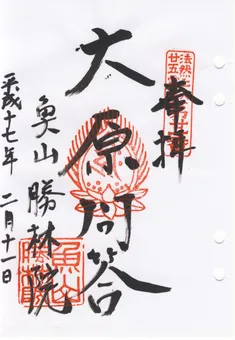 奉拝
大原問答
魚山勝林院
平成十七年二月十一日
法然上人
廿五
魚山